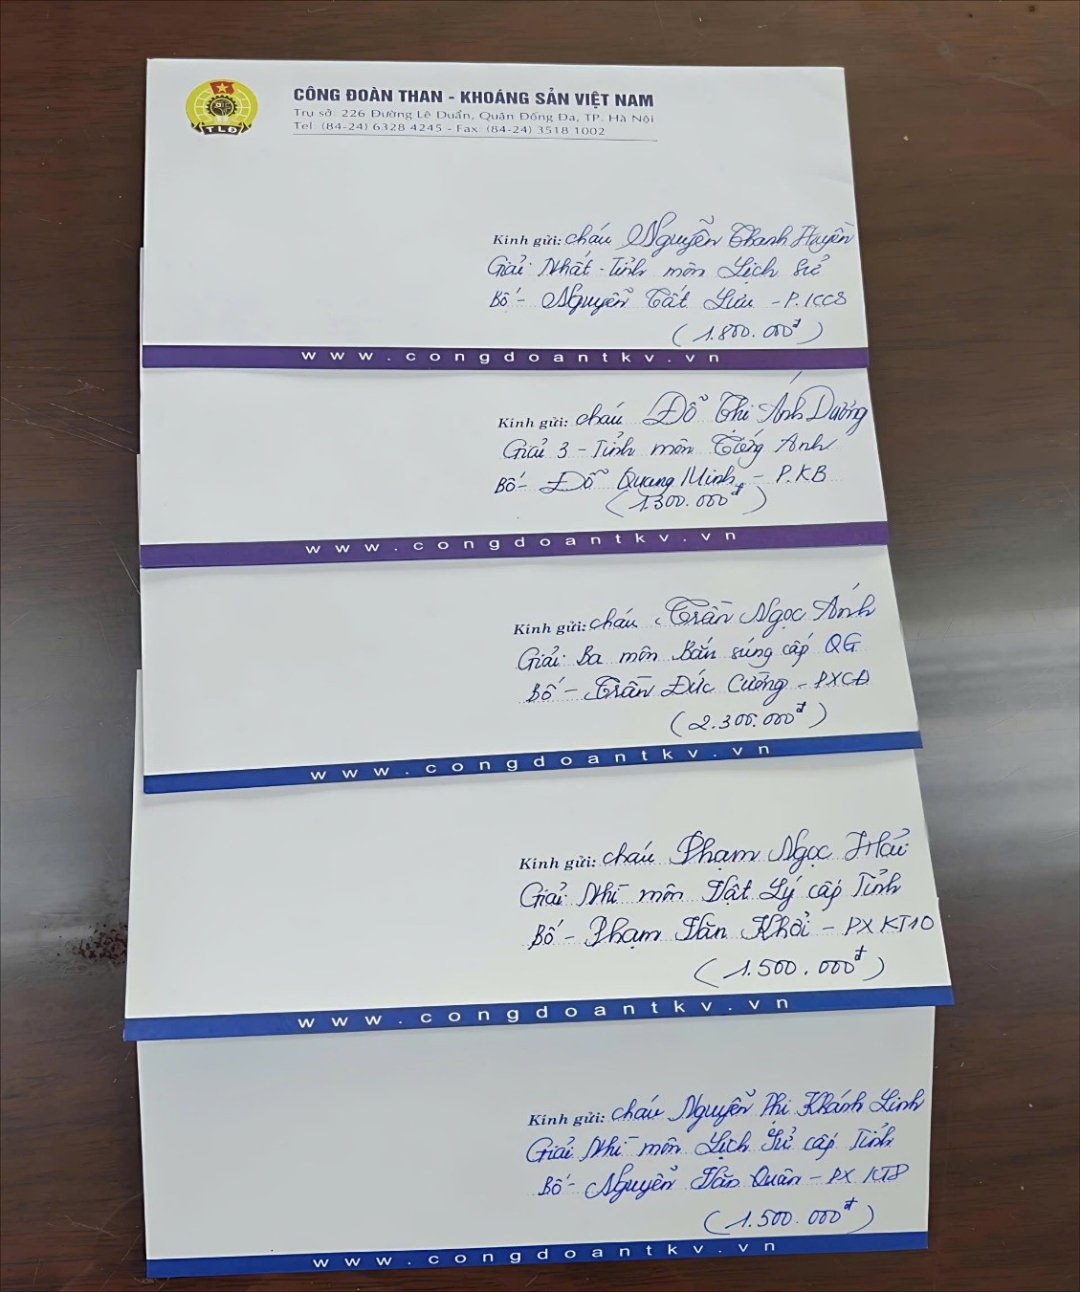 TLĐ
CÔNG ĐOÀN THAN - KHOÁNG SẢN VIỆT NAM
Trụ sở: 226 Đường Lê Duẩn, Quận Đống Đa, TP. Hà Nội
Tel: (84-24) 6328 4245 - Fax: (84-24) 3518 1002
Kính gửi: cháu Nguyễn Thanh Huyền
Giải Nhất - Tỉnh môn Lịch Sử
Bố - Nguyễn Tất Lưu - P. KCS
(1.800.000đ)
www.congdoantkv.vn
Kính gửi: cháu Đỗ Thị Ánh Dương
Giải 3 - Tỉnh môn Tiếng Anh
Bố - Đỗ Quang Minh - P.KB
(1.300.000đ)
www.congdoantkv.vn
Kính gửi: cháu Trần Ngọc Ánh
Giải Ba môn Bắn súng cấp QG
Bố - Trần Đức Cường - PXCĐ
(2.300.000đ)
www.congdoantkv.vn
Kính gửi: cháu Phạm Ngọc� Hải
Giải Nhì môn Vật Lý cấp Tỉnh
Bố - Phạm Văn Khởi - PX KT10
(1.500.000đ)
www.congdoantkv.vn
Kính gửi: cháu Nguyễn Phi Khánh Linh
Giải Nhì môn Lịch Sử cấp Tỉnh
Bố - Nguyễn Văn Quân - PX KT8
(1.500.000đ)
www.congdoantkv.vn